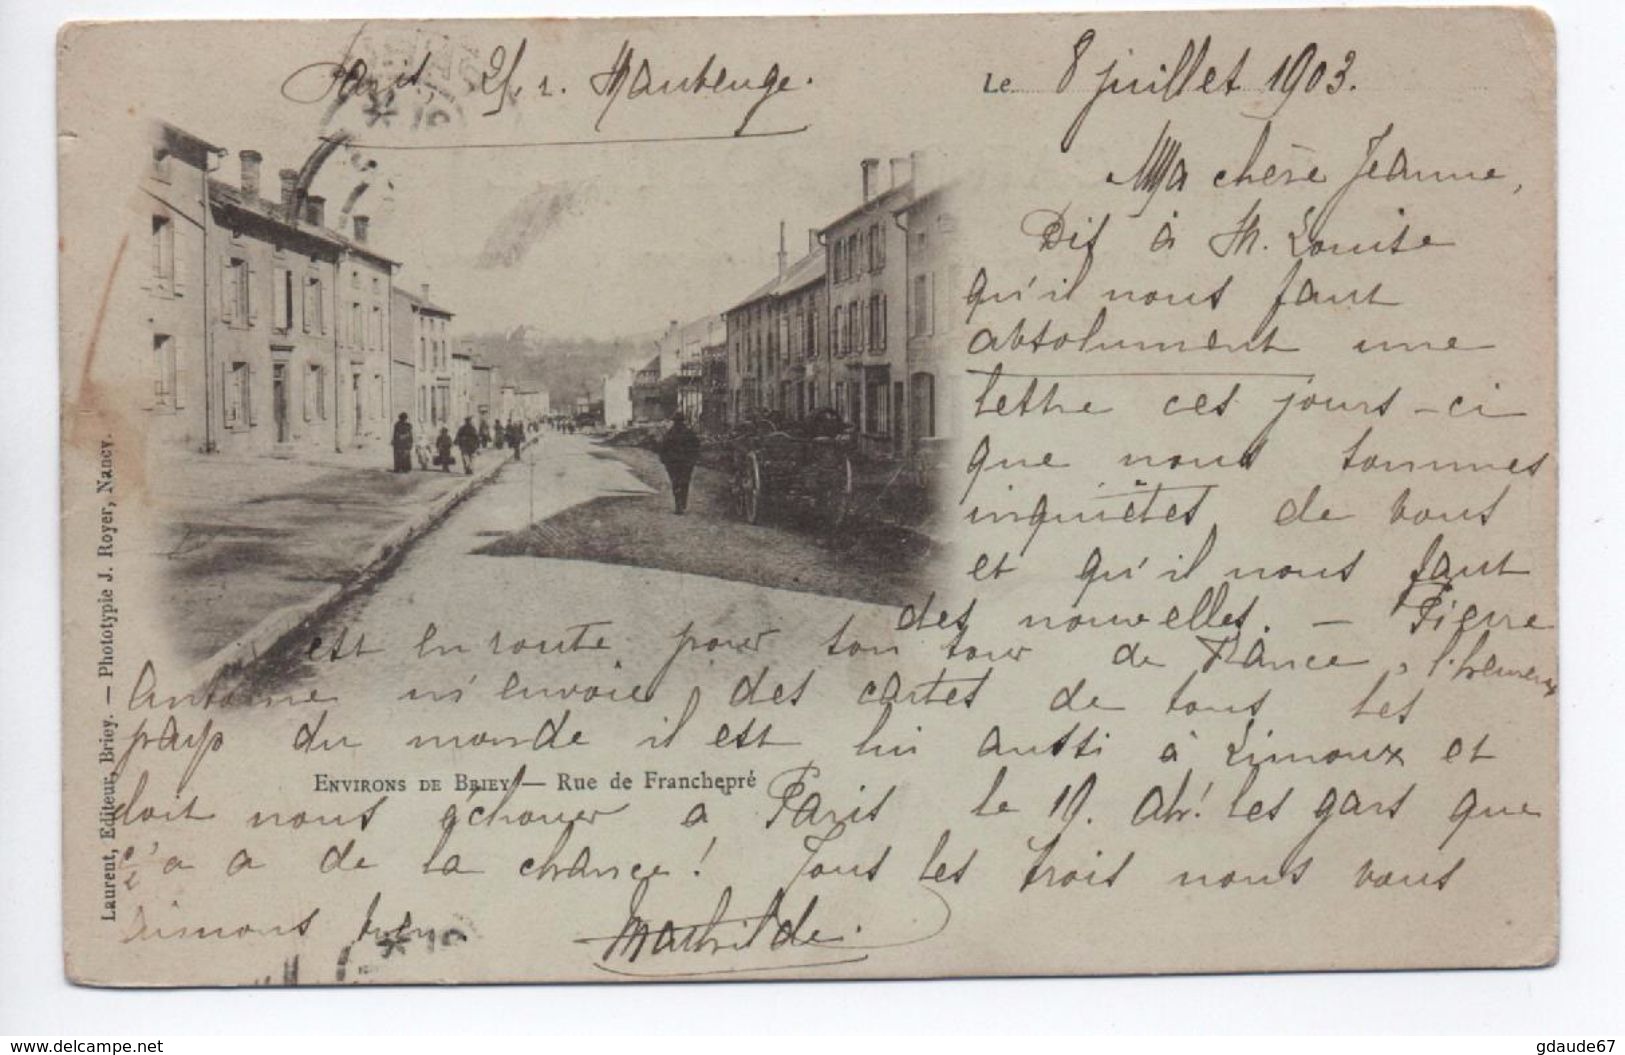 21, r. Maubeuge.
Le 8 juillet 1903.
Ma chère Jeanne,
Dis à M. Louise
qu'il nous faut
absolument une
lettre ces jours-ci
que nous sommes
inquiètes de vous
et qu'il nous faut
des nouvelles. — Pierre
est en route pour son tour de France, l'heureux
Antoine m'envoie des cartes de tous les
pays du monde il est lui aussi à Limoux et
ENVIRONS DE BRIEY — Rue de Franchepré
doit nous échouer à Paris le 19. Ah! les gars que
ç'a a de la chance! Tous les trois nous vous
aimons bien.
Mathilde.
Laurent, Editeur, Briey. — Phototypie J. Royer, Nancy.
www.delcampe.net
gdaude67